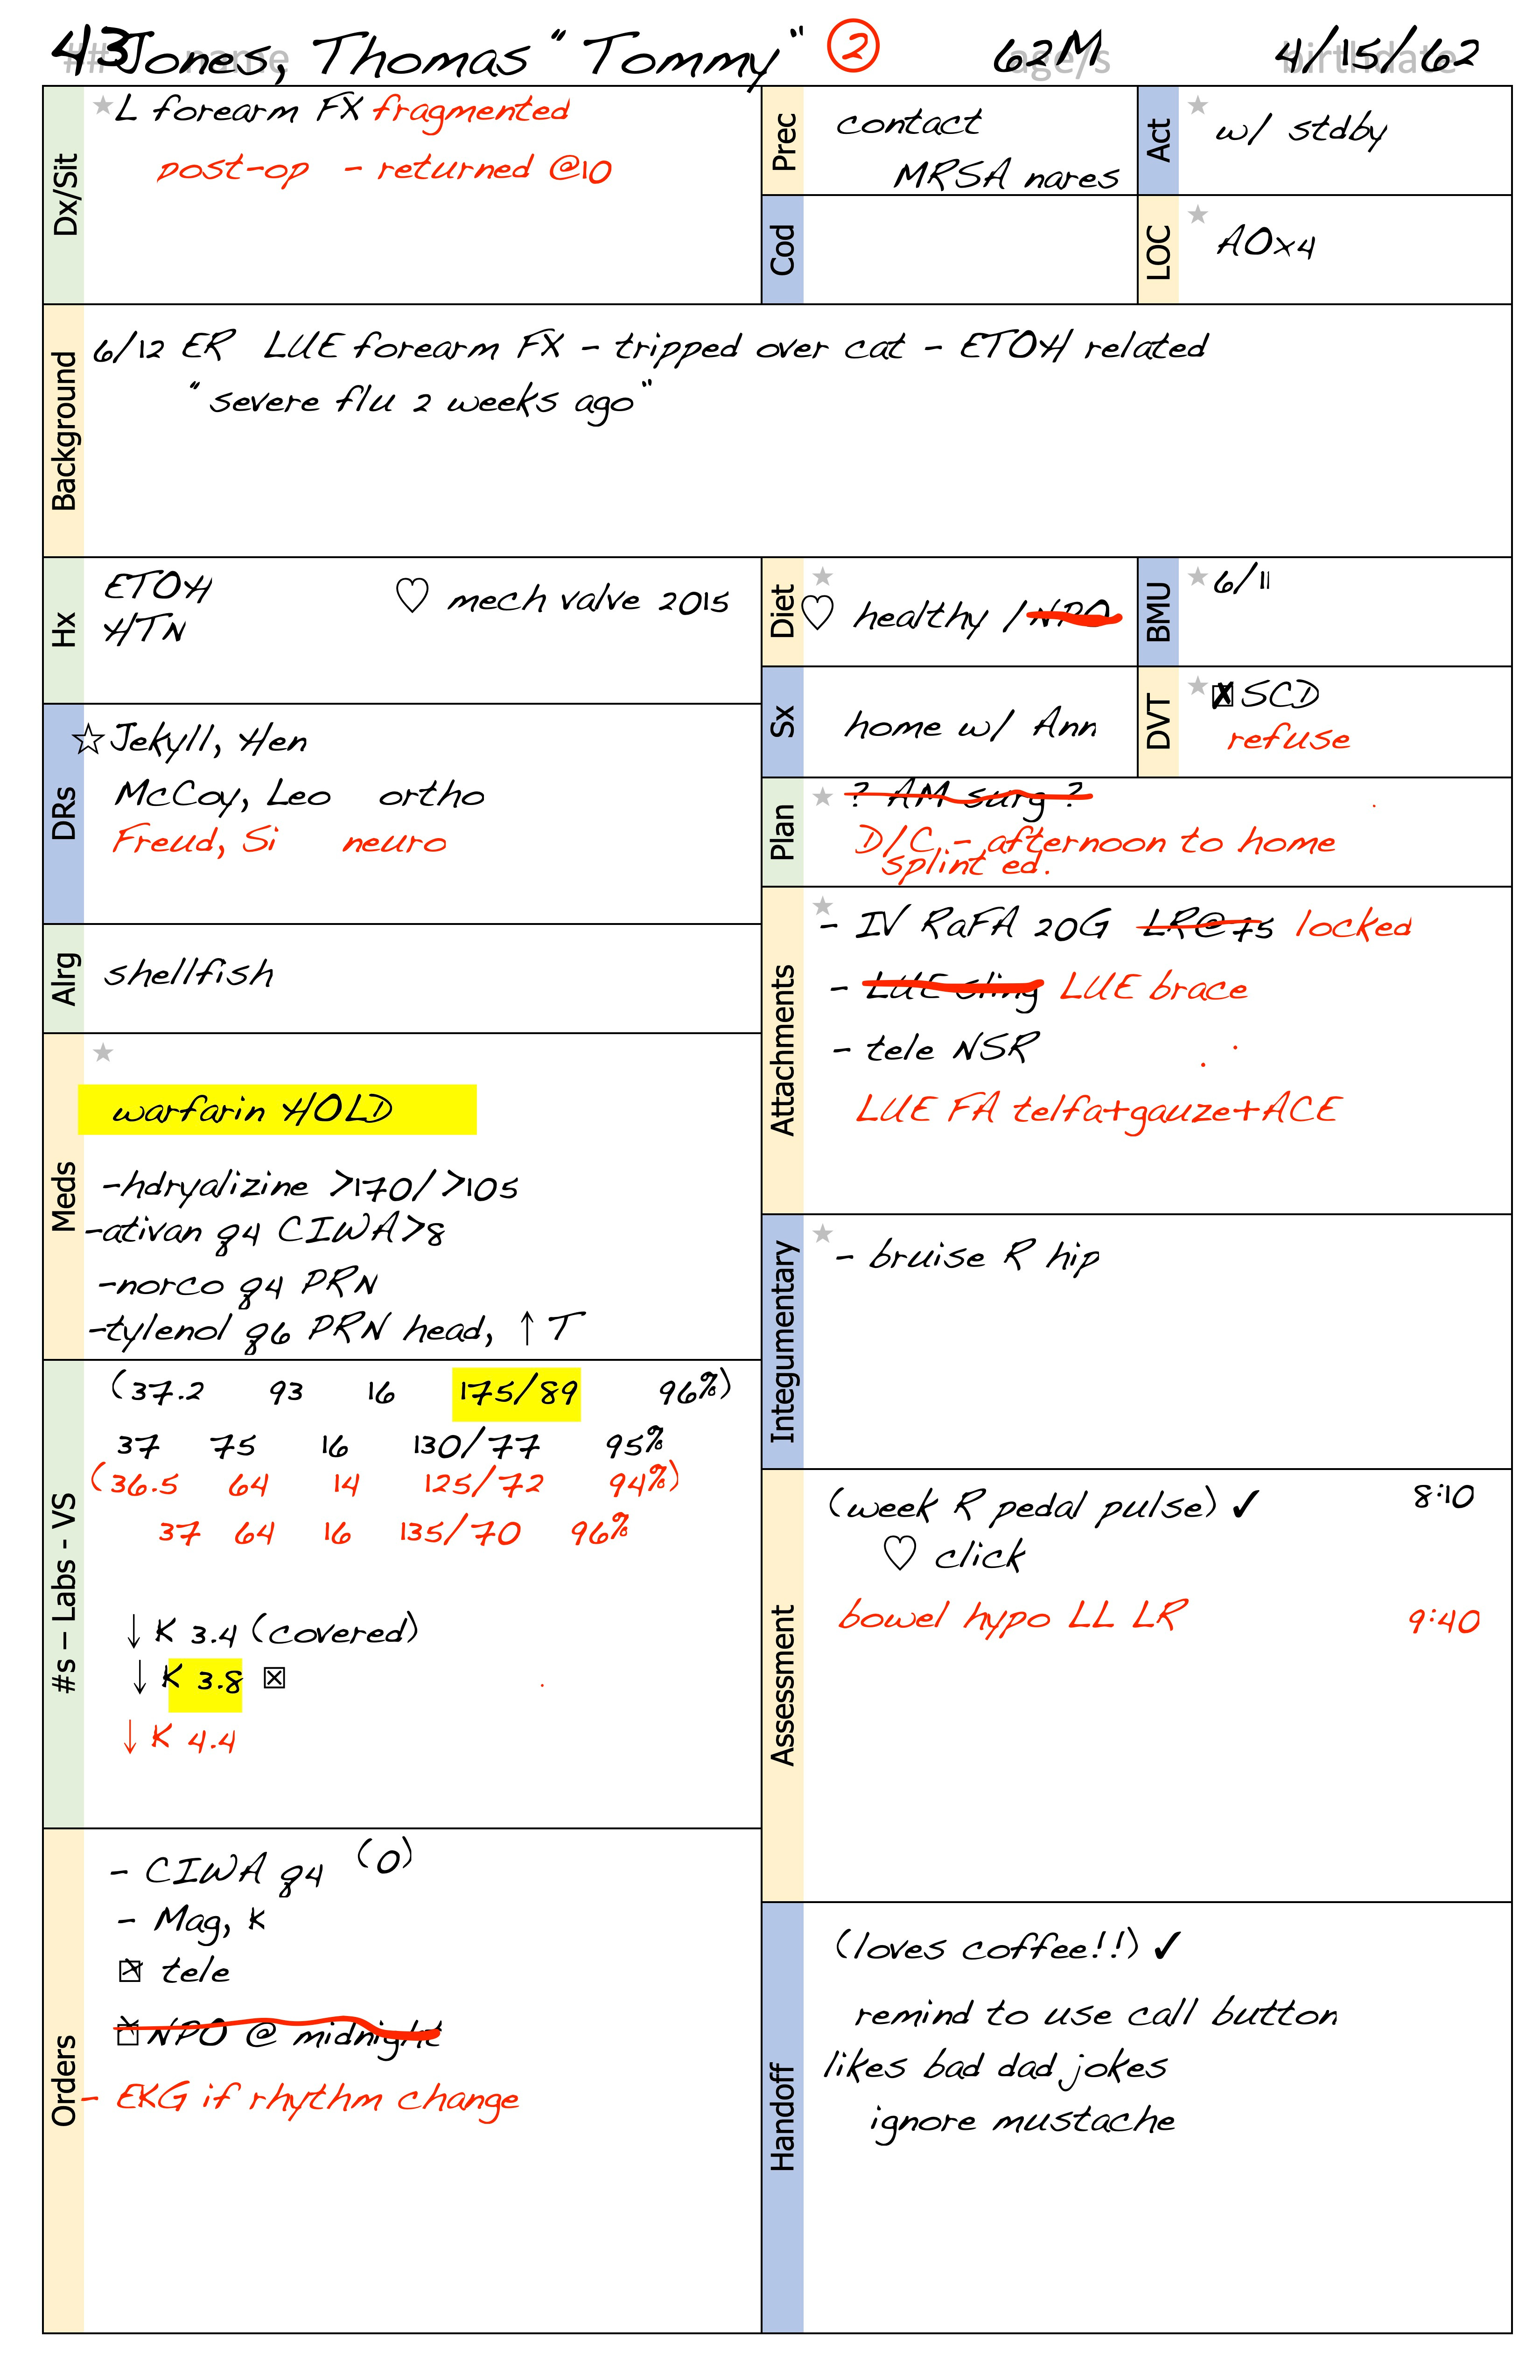 43 Jones, Thomas "Tommy" 2 62M 4/15/62
## name age/s birthdate
Dx/Sit
L forearm FX fragmented
post-op - returned @10
Prec
contact
MRSA nares
Act
w/ stdby
Cod
LOC
AOx4
Background
6/12 ER LUE forearm FX - tripped over cat - ETOH related
"severe flu 2 weeks ago"
Hx
ETOH
HTN
♡ mech valve 2015
Diet
♡ healthy / NPO
BMU
6/11
DRs
☆ Jekyll, Hen
McCoy, Leo ortho
Freud, Si neuro
Sx
home w/ Ann
DVT
☒ SCD
refuse
Plan
? AM surg ?
D/C - afternoon to home
splint ed.
Alrg
shellfish
Attachments
- IV RaFA 20G LR@75 locked
- LUE sling LUE brace
- tele NSR
LUE FA telfa+gauze+ACE
Meds
warfarin HOLD
-hdryalizine >170/ >105
-ativan q4 CIWA>8
-norco q4 PRN
-tylenol q6 PRN head, ↑ T
Integumentary
- bruise R hip
#s – Labs - VS
(37.2 93 16 175/89 96%)
37 75 16 130/77 95%
(36.5 64 14 125/72 94%)
37 64 16 135/70 96%
↓ K 3.4 (covered)
↓ K 3.8 ☒
↓ K 4.4
Assessment
(week R pedal pulse) ✓ 8:10
♡ click
bowel hypo LL LR 9:40
Orders
- CIWA q4 (0)
- Mag, K
☒ tele
☒ NPO @ midnight
- EKG if rhythm change
Handoff
(loves coffee!!) ✓
remind to use call button
likes bad dad jokes
ignore mustache